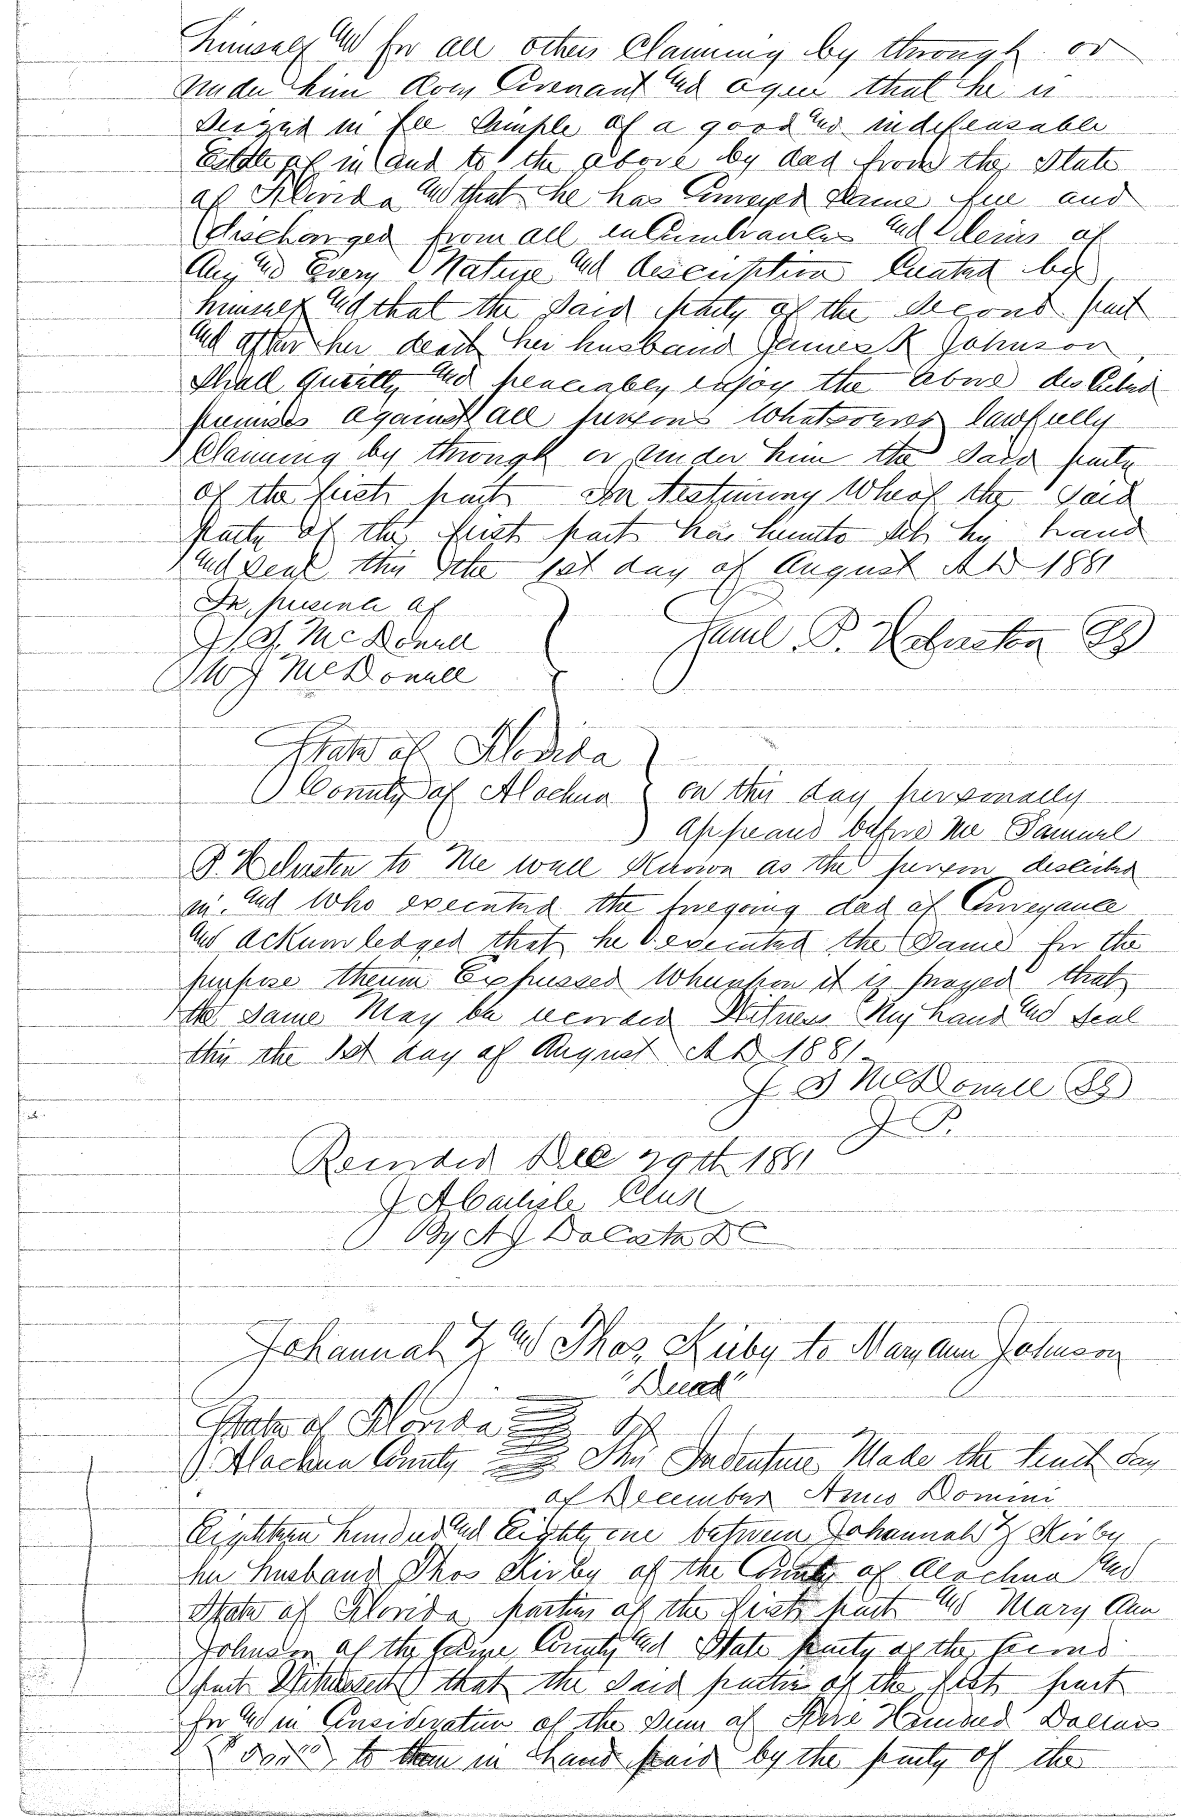 himself and for all others Claiming by through or
under him does Covenant and agree that he is
Seized in fee Simple of a good and indefeasable
Estate of in and to the above by deed from the State
of Florida and that he has Conveyed Same free and
discharged from all enCumbrances and Leins of
Any and Every Nature and description Created by
himself and that the Said party of the Second part
and after her death her husband James K Johnson
Shall quietly and peaceably enjoy the above described
premises against all persons Whatsoever lawfully
Claiming by through or under him the Said party
of the first part In testimony Wheof the Said
party of the first part has heunto set his hand
and Seal this the 1st day of August AD 1881
In presence of
J. S. McDonell
W J McDonell
Saml P. Helveston
State of Florida
County of Alachua on this day personally
Appeard before Me Samuel
P. Helveston to Me well Known as the person described
in and Who executed the foregoing deed of Conveyance
and acknowledged that he executed the Same for the
purpose therein Expressed Whereupon it is prayed that
the Same May be recorded Witness My hand and Seal
this the 1st day of August AD 1881
J S McDonell
J P.
Recorded Dec 29th 1881
J A Carlisle Clerk
By A J DaCosta DC
Johannah Z and Thos. Kirby to Mary Ann Johnson
"Deed"
State of Florida
Alachua County This Indenture Made the tenth day
of December Anno Domini
Eighteen hundred and Eighty one between Johannah Z Kirby
her husband Thos Kirby of the County of Alachua and
State of Florida parties of the first part and Mary Ann
Johnson of the Same County and State party of the Second
part Witnesseth that the Said parties of the first part
for and in Consideration of the Sum of Five Hundred Dollars
to them in hand paid by the party of the